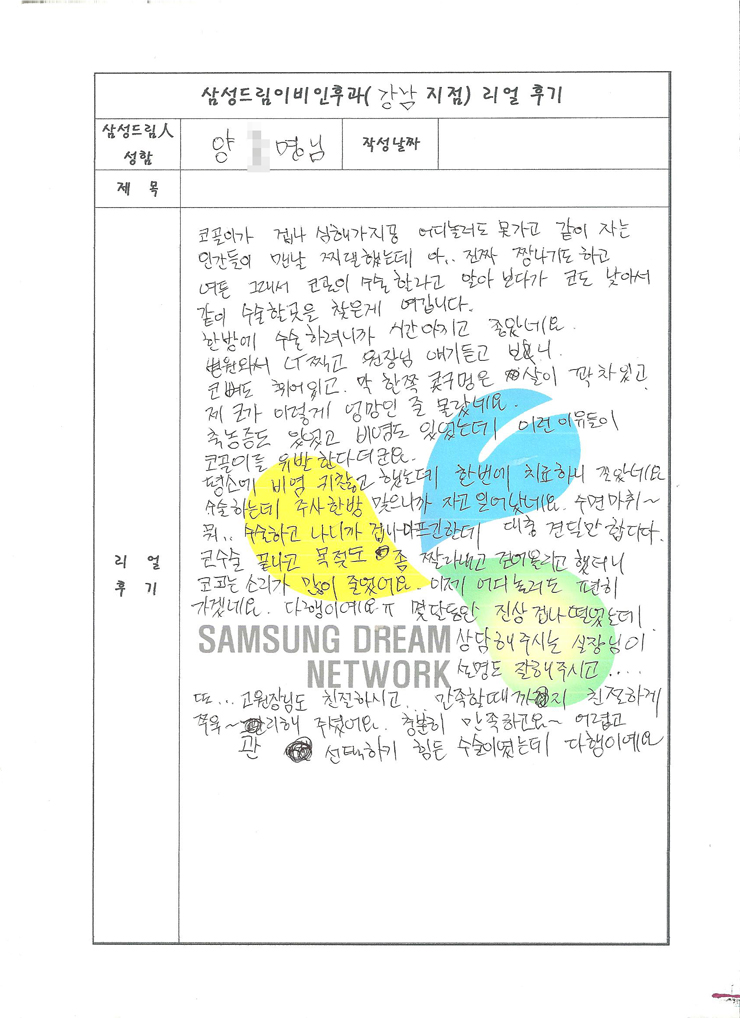 삼성드림이비인후과(강남 지점) 리얼 후기
삼성드림人 성함
양 명님
작성날짜
제 목
리 얼 후 기
코골이가 겁나 심해가지공 어디놀러도 못가고 같이 자는
인간들이 맨날 찌댈했는데 아.. 진짜 짱나기도하고
여튼 그래서 코골이 수술 할라고 알아 보다가 코도 낮아서
같이 수술할곳을 찾은게 여깁니다.
한방에 수술하려니까 시간아끼고 좋았네요.
병원와서 CT찍고 원장님 얘기듣고 보니.
코뼈도 휘어있고. 막 한쪽 콧구멍은 살이 꽉차있고.
제 코가 이렇게 엉망인 줄 몰랐네요.
축농증도 있었고 비염도 있었는데 이런이유들이
코골이를 유발한다더군요.
평소에 비염 귀찮고 했는데 한번에 치료하니 좋았네요
수술하는데 주사한방 맞으니까 자고 일어났네요. 수면마취~
뭐.. 수술하고 나니까 겁나아프긴한데 대충 견딜만합디다.
코수술 끝나고 목젖도 좀 짤라내고 걷어올리고 했더니
코고는소리가 많이 줄었어요. 이제 어디놀러도 편히
가겠네요. 다행이에요ㅠ 몇달동안 진상 겁나떨었는데.
상담해주시는 실장님이
설명도 잘해주시고....
또... 고원장님도 친절하시고... 만족할때까지 친절하게
쭈욱~ 관리해 주셨어요. 충분히 만족하고요~ 어렵고
선택하기 힘든 수술이었는데 다행이예요
SAMSUNG DREAM
NETWORK